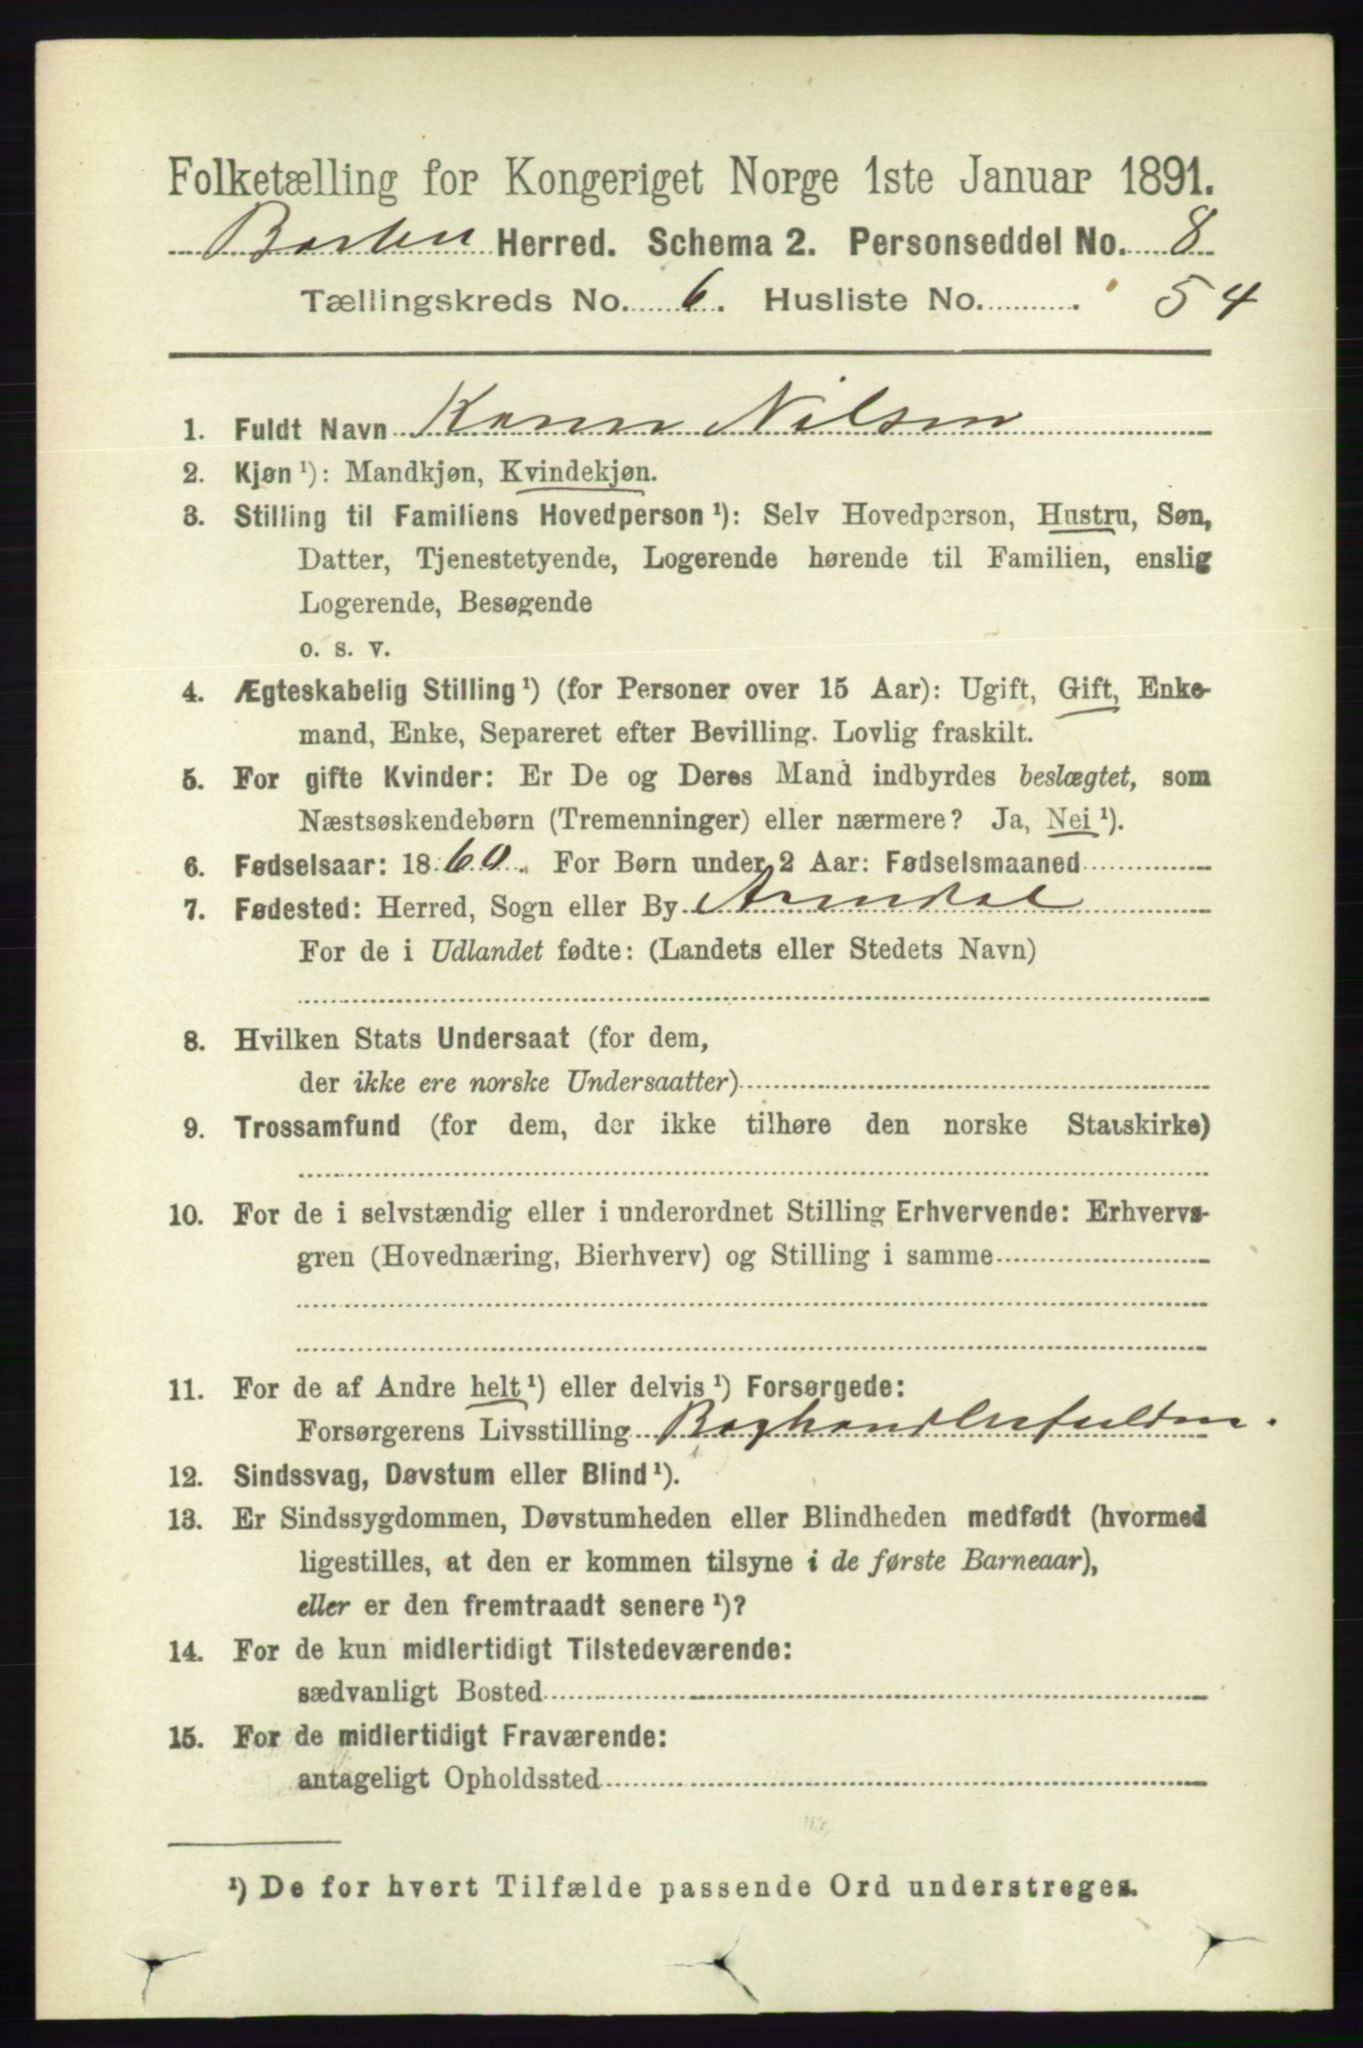 Folketælling for Kongeriget Norge 1ste Januar 1891.
Herred. Schema 2. Personseddel No. 8
Tællingskreds No. 6. Husliste No. . 54
1. Fuldt Navn Karen Nilsen
2. Kjøn ¹): Mandkjøn, Kvindekjøn.
3. Stilling til Familiens Hovedperson ¹): Selv Hovedperson, Hustru, Søn,
Datter, Tjenestetyende, Logerende hørende til Familien, enslig
Logerende, Besøgende
o. s. v.
4. Ægteskabelig Stilling ¹) (for Personer over 15 Aar): Ugift, Gift, Enke-
mand, Enke, Separeret efter Bevilling. Lovlig fraskilt.
5. For gifte Kvinder: Er De og Deres Mand indbyrdes beslægtet, som
Næstsøskendebørn (Tremenninger) eller nærmere? Ja, Nei ¹).
6. Fødselsaar: 1860. For Børn under 2 Aar: Fødselsmaaned
7. Fødested: Herred, Sogn eller By Arendal
For de i Udlandet fødte: (Landets eller Stedets Navn)
8. Hvilken Stats Undersaat (for dem,
der ikke ere norske Undersaatter)
9. Trossamfund (for dem, der ikke tilhøre den norske Statskirke)
10. For de i selvstændig eller i underordnet Stilling Erhvervende: Erhvervs-
gren (Hovednæring, Bierhverv) og Stilling i samme
11. For de af Andre helt ¹) eller delvis ¹) Forsørgede:
Forsørgerens Livsstilling
12. Sindssvag, Døvstum eller Blind ¹).
13. Er Sindssygdommen, Døvstumheden eller Blindheden medfødt (hvormed
ligestilles, at den er kommen tilsyne i de første Barneaar),
eller er den fremtraadt senere ¹)?
14. For de kun midlertidigt Tilstedeværende:
sædvanligt Bosted
15. For de midlertidigt Fraværende:
antageligt Opholdssted
¹) De for hvert Tilfælde passende Ord understreges.